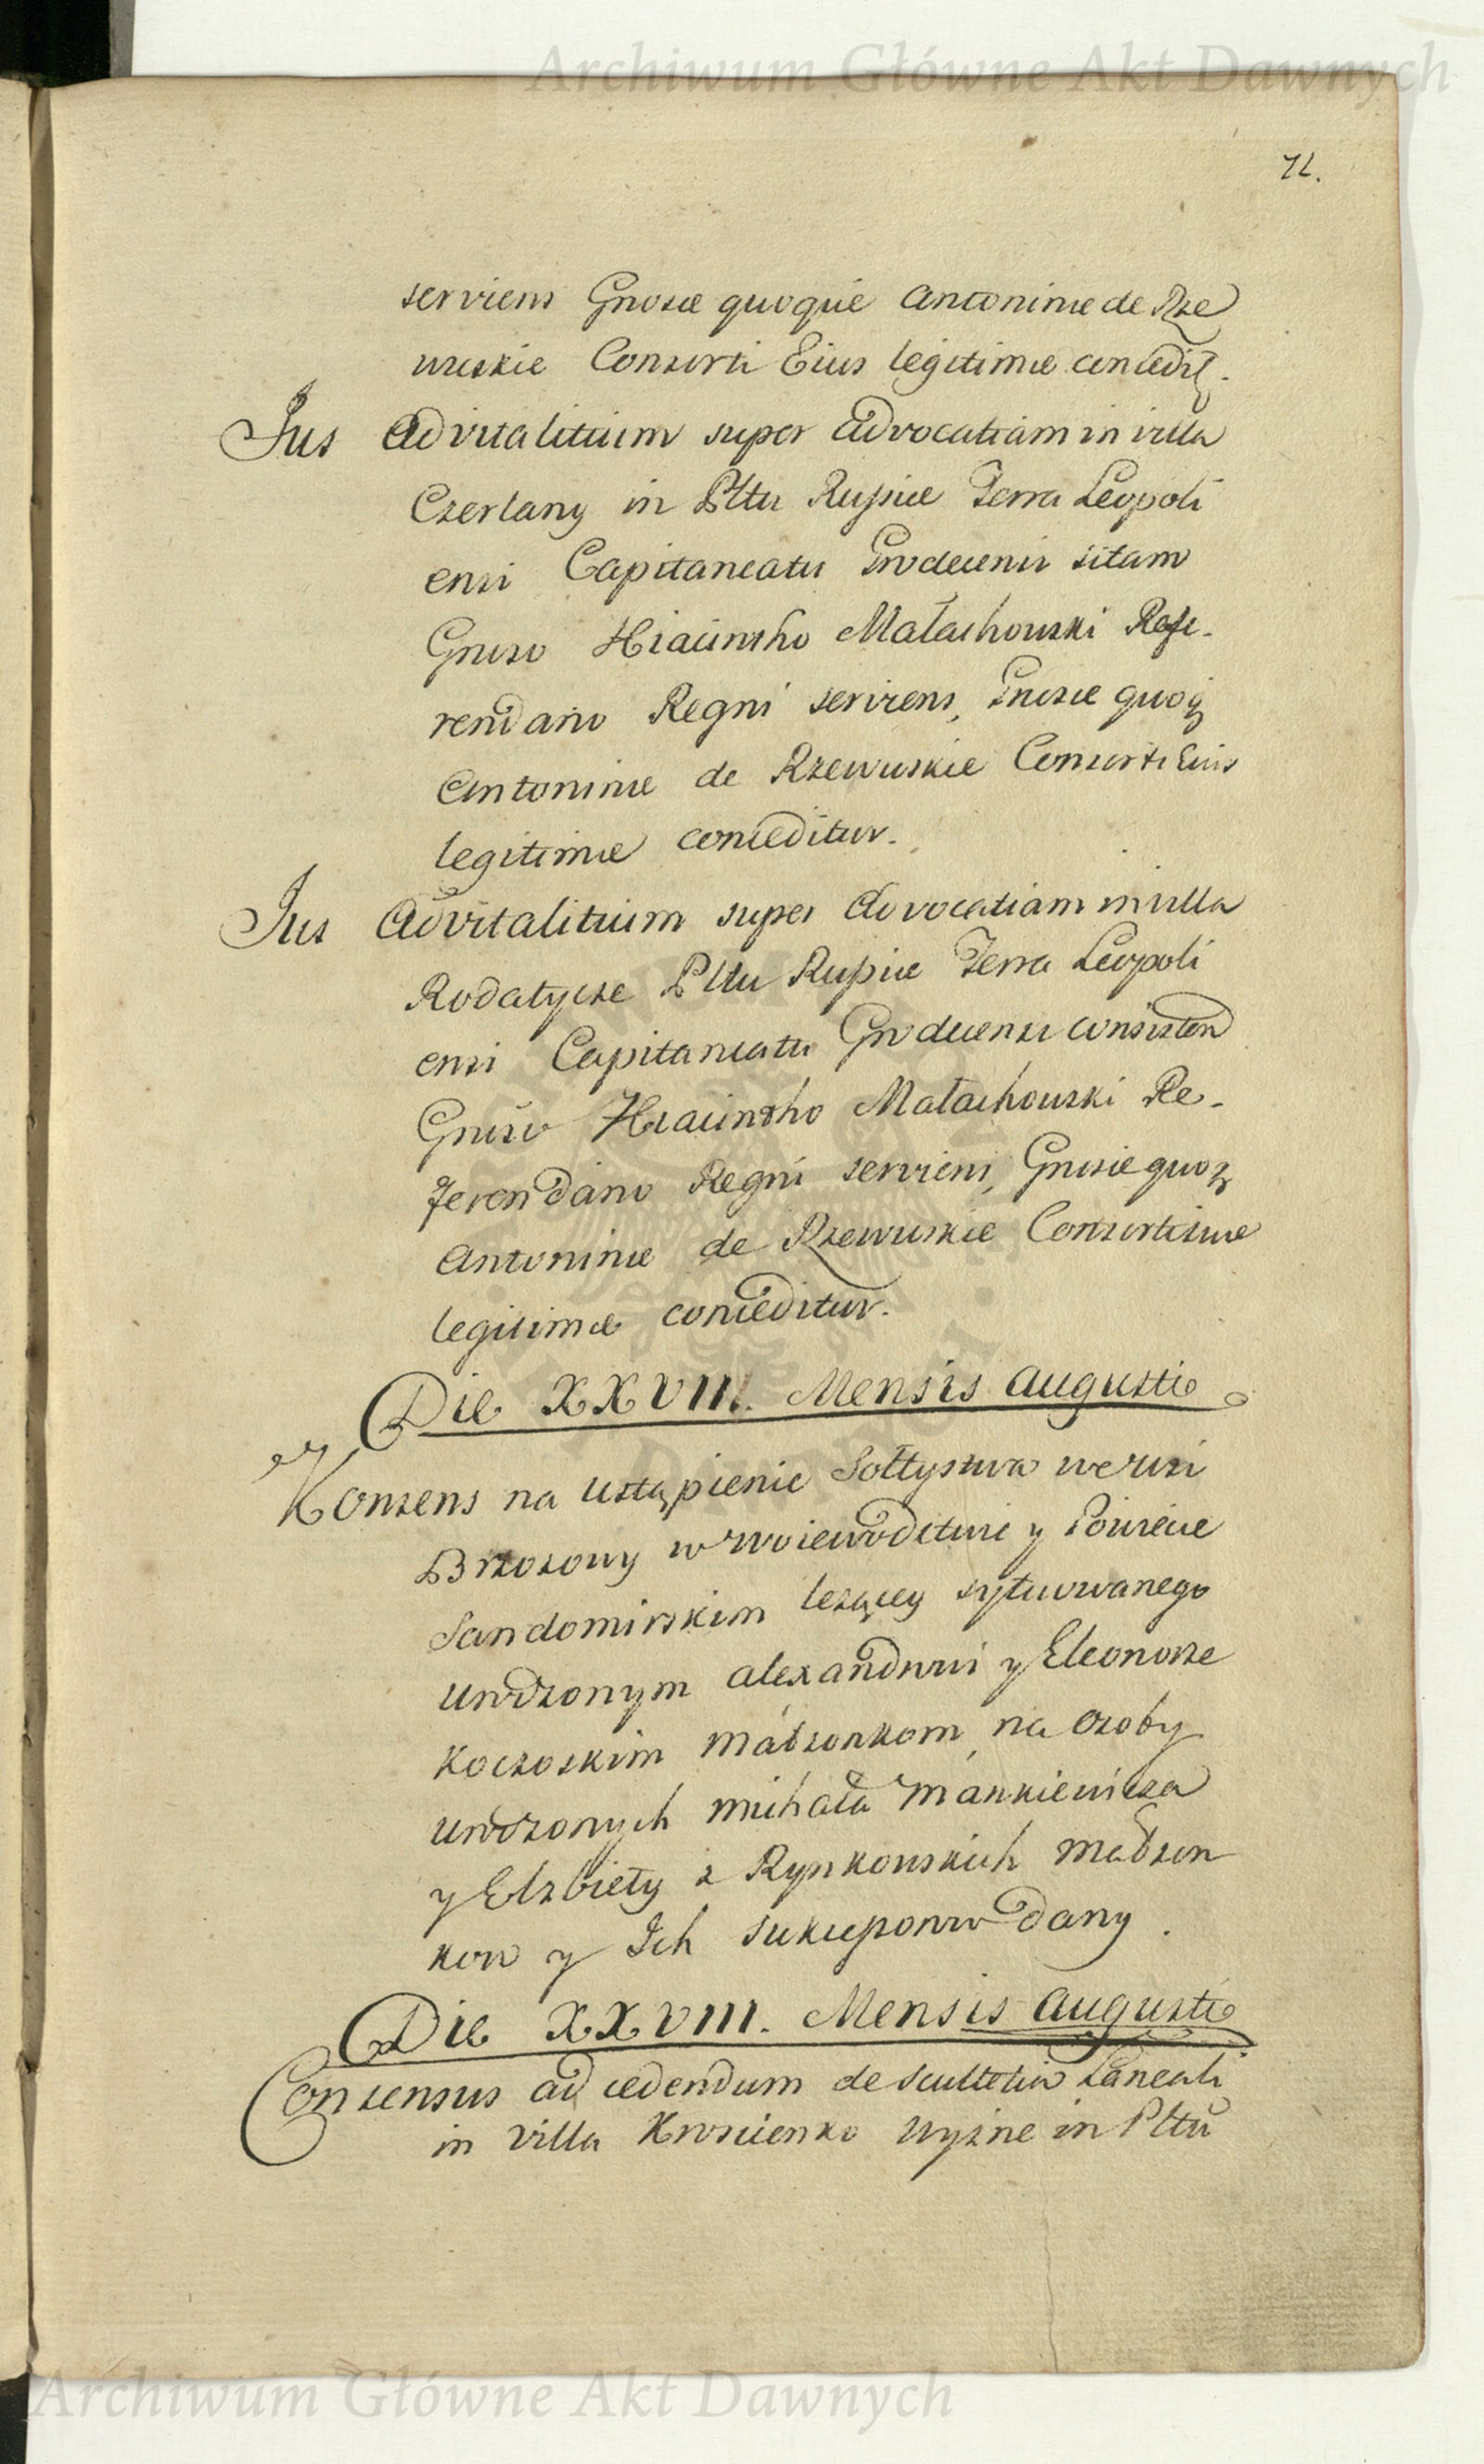 Archiwum Główne Akt Dawnych
72.
serviens Gnosæ quoque Antoninæ de Rze
wuskie Consorti Eius legitimæ concedit.
Jus Advitalitium super Advocatiam in villa
Czerlany in Plttu Russiæ Terra Leopoli
ensi Capitaneatu Grodecensi sitam
Gnoso Hiacintho Małachowski Refe-
rendario Regni serviens, Gnosæ quoq
Antoninæ de Rzewuskie Consorti Eius
legitimæ conceditur.
Jus Advitalitium super Advocatiam in villa
Rodatycze Plttu Russiæ Terra Leopoli
ensi Capitaneatu Grodecensi consisten
Gnoso Hiacintho Małachowski Re-
ferendario Regni serviens, Gnosæ quoq
Antoninæ de Rzewuskie Consorti suæ
legitimæ conceditur.
Die XXVIII. Mensis Augusti
Konsens na ustąpienie Sołtystwa we wsi
Brzozowy w Woiewodztwie y Powiecie
Sandomirskim leżącey sytuowanego
Urodzonym Alexandrowi y Eleonorze
Koczoskim Małżonkom, na Osoby
Urodzonych Michała Mankiewicza
y Elzbiety z Rynkowskich Małżon
kow y Ich Sukcessorow dany.
Die XXVIII. Mensis Augusti
Consensus ad cedendum de Scultetia Laneali
in Villa Kroscienko Wyżne in Plttu
Archiwum Główne Akt Dawnych